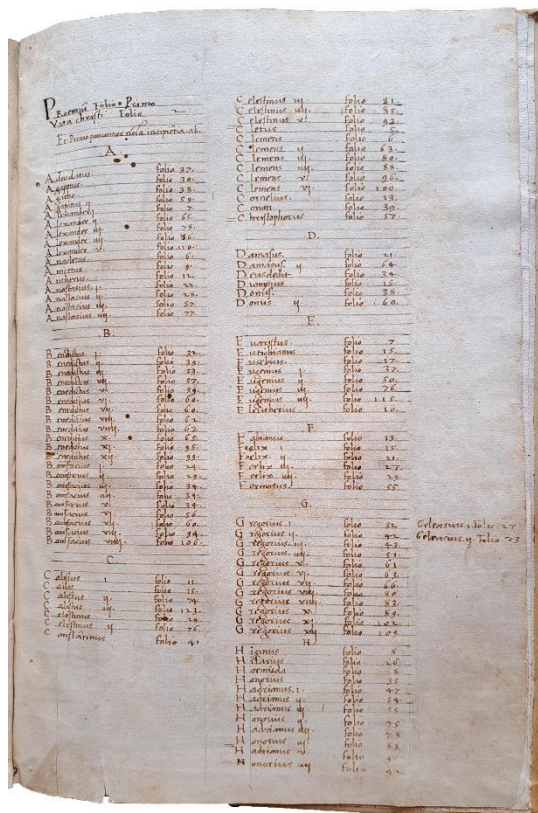 Proemiu Folio Primo
Vita christi Folio
Et Primo ponuntur incipietia ab
A.
A deodatus. folio 37.
A gapitus. folio 30.
A gatho folio 38.
A gapitus ij folio 59.
A lexander j folio 7
A lexander ij folio 65.
A lexander iij folio 75.
A lexander iiij folio 86.
A lexander v. folio 110.
A nacletus. folio 6.
A nicetus folio 9.
A ntherus folio 12.
A nastasius. j. folio 22.
A nastasius ij folio 28.
A nastasius iij. folio 57.
A nastasius iiij folio 77.
B.
B enedictus j. folio 32.
B enedictus ij folio 39.
B enedictus iij folio 53.
B enedictus iiij. folio 57.
B enedictus v folio 59.
B enedictus vj folio 60.
B enedictus vij folio 60.
B enedictus viij folio 62.
B enedictus viiij folio 63.
B enedictus x. folio 65.
B enedictus xj folio 95.
B enedictus xij folio 99.
B onifacius j. folio 24.
B onifacius ij folio 29.
B onifacius iij. folio 34.
B onifacius iiij folio 34.
B onifacius v. folio 34.
B onifacius vj folio 56.
B onifacius vij folio 60.
B onifacius viij. folio 94.
B onifacius viiij. folio 106.
C.
C alistus j folio 11.
C aius folio 15.
C alistus ij. folio 74.
C alistus iij. folio 123.
C elestinus folio 24.
C elestinus ij folio 76.
C onstantinus folio 41.
C elestinus iij folio 82.
C elestinus iiij folio 85.
C elestinus v. folio 93.
C letus folio 5.
C lemens folio 6.
C lemens ij folio 63.
C lemens iij. folio 80.
C lemens iiij folio 88.
C lemens v. folio 96.
C lemens vj. folio 100.
C ornelius. folio 13.
C onon folio 39.
C hristophorus folio 57.
D.
D amasus. folio 21.
D amasus. ij folio 64.
D eusdedit folio 34.
D ionisius folio 15.
D onus. folio 38.
D onus ij folio 60.
E.
E varistus. folio 7
E uticianus folio 15.
E usebius. folio 17.
E ugenius j. folio 37.
E ugenius ij folio 50.
E ugenius iij folio 76.
E ugenius iiij folio 115.
E leutherius folio 10.
F
F abianus folio 13.
F elix folio 15.
F oelix. ij folio 21.
F oelix iij. folio 27.
F oelix iiij. folio 29.
F ormosus folio 55
G.
G regorius. j folio 32
G regorius ij. folio 42
G regorius. iij. folio 43.
G regorius iiij. folio 51.
G regorius v. folio 61
G regorius vj. folio 63.
G regorius vij folio 66
G regorius viij folio 80
G regorius viiij. folio 83.
G regorius x. folio 89.
G regorius xj folio 102.
G regorius xij folio 109.
Gelasius j folio 27
Gelasius. ij folio 73
H
H iginus folio 8
H ilarius folio 26
H ormisda folio
H onorius folio 35
H adrianus. j folio 47
H adrianus ij. folio 54.
H adrianus iij folio 55
H onorius ij folio 75
H adrianus iiij. folio 78
H onorius iij folio 83
H adrianus v. folio
H onorius iiij folio 92.